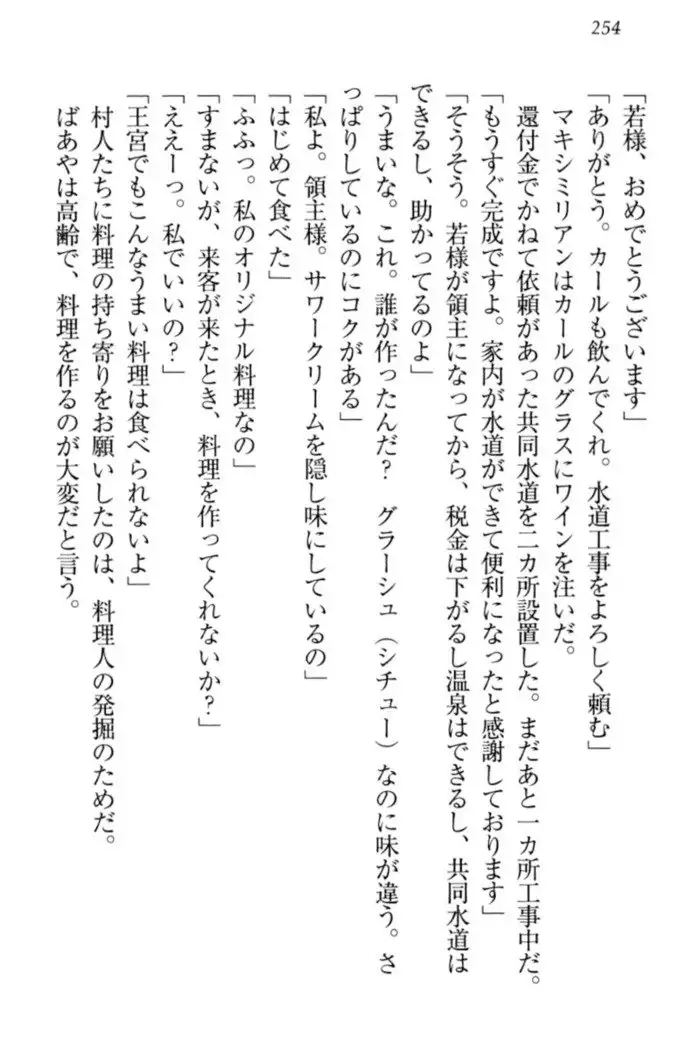 254
「若様、おめでとうございます」
「ありがとう。カールも飲んでくれ。水道工事をよろしく頼む」
マキシミリアンはカールのグラスにワインを注いだ。
還付金でかねて依頼があった共同水道を二カ所設置した。まだあと一カ所工事中だ。
「もうすぐ完成ですよ。家内が水道ができて便利になったと感謝しております」
「そうそう。若様が領主になってから、税金は下がるし温泉はできるし、共同水道は
できるし、助かってるのよ」
「うまいな。これ。誰が作ったんだ？　グラーシュ（シチュー）なのに味が違う。さ
っぱりしているのにコクがある」
「私よ。領主様。サワークリームを隠し味にしているの」
「はじめて食べた」
「ふふっ。私のオリジナル料理なの」
「すまないが、来客が来たとき、料理を作ってくれないか？」
「ええーっ。私でいいの？」
「王宮でもこんなうまい料理は食べられないよ」
村人たちに料理の持ち寄りをお願いしたのは、料理人の発掘のためだ。
ばあやは高齢で、料理を作るのが大変だと言う。